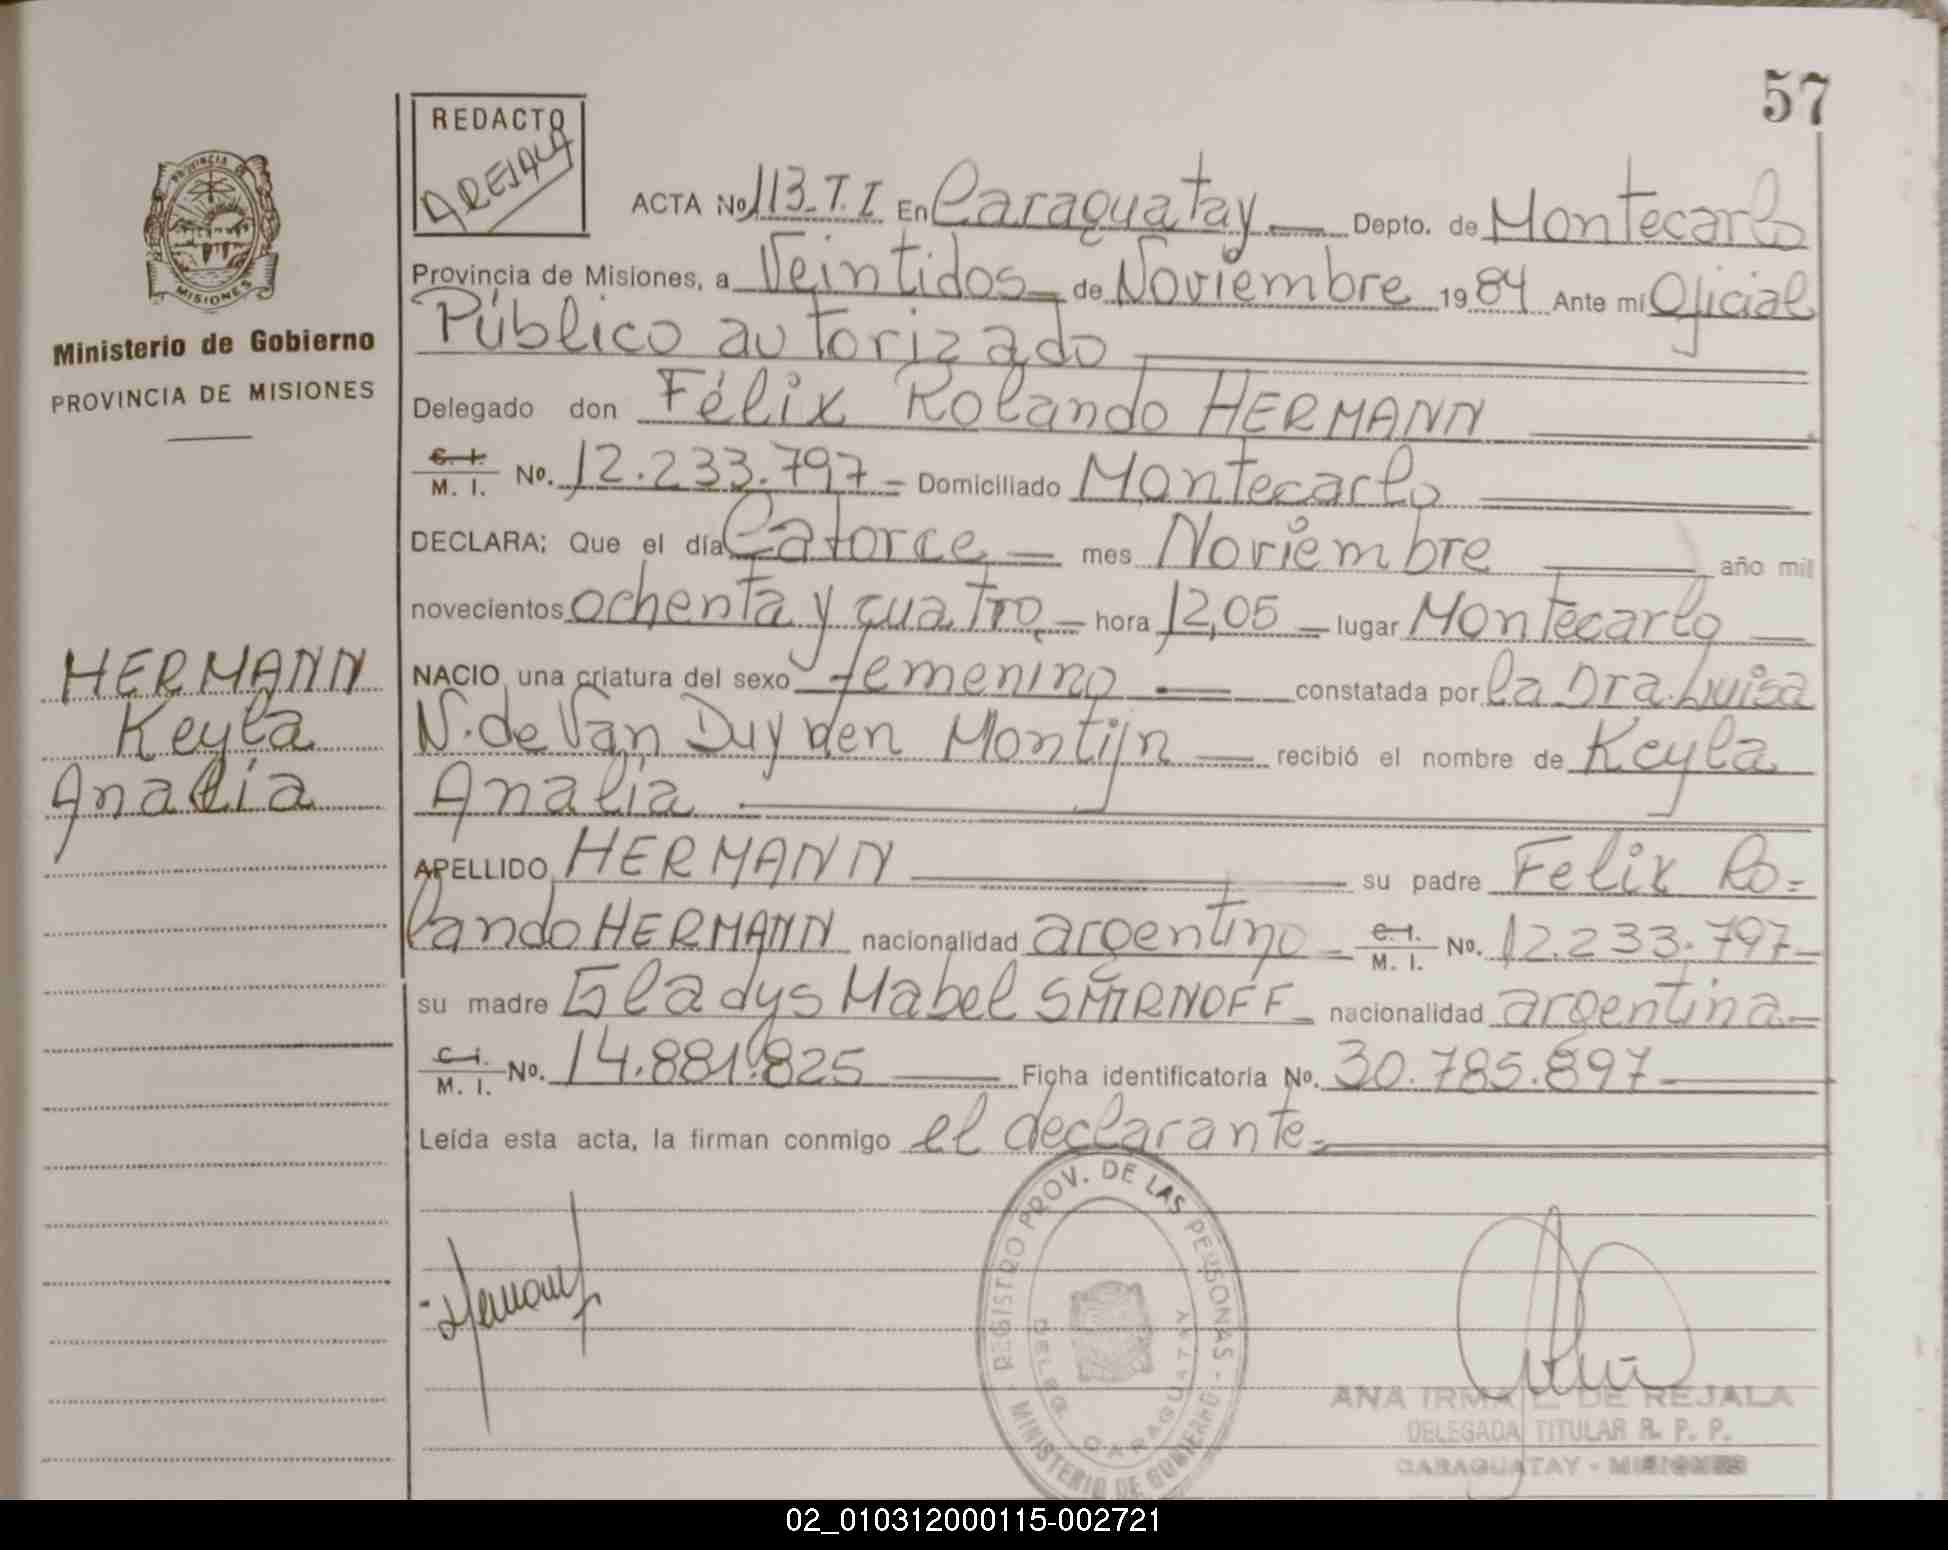 57
REDACTO
AREJALA
ACTA No 113-T.I. En Caraguatay Depto. de Montecarlo
Provincia de Misiones, a Veintidos de Noviembre 19 84 Ante mí Oficial
Público autorizado
Delegado don Félix Rolando HERMANN
C. I.
M. I. No. 12.233.797 Domiciliado Montecarlo
DECLARA: Que el día Catorce mes Noviembre año mil
novecientos ochenta y cuatro hora 12,05 lugar Montecarlo
NACIO una criatura del sexo femenino constatada por la Dra. Luisa
N. de Van Duynen Montijn recibió el nombre de Keyla
Analia
APELLIDO HERMANN su padre Felix Ro=
lando HERMANN nacionalidad argentino C. I.
M. I. No. 12.233.797
su madre Gladys Mabel SMIRNOFF nacionalidad argentina
C. I.
M. I. No. 14.881.825 Ficha identificatoria No. 30.785.897
Leída esta acta, la firman conmigo el declarante
PROVINCIA DE
MISIONES
Ministerio de Gobierno
PROVINCIA DE MISIONES
HERMANN
Keyla
Analia
REGISTRO PROV. DE LAS PERSONAS
MINISTERIO DE GOBIERNO
DELEG. CARAGUATAY
ANA IRMA DE REJALA
DELEGADA TITULAR R. P. P.
CARAGUATAY - MISIONES
02_010312000115-002721